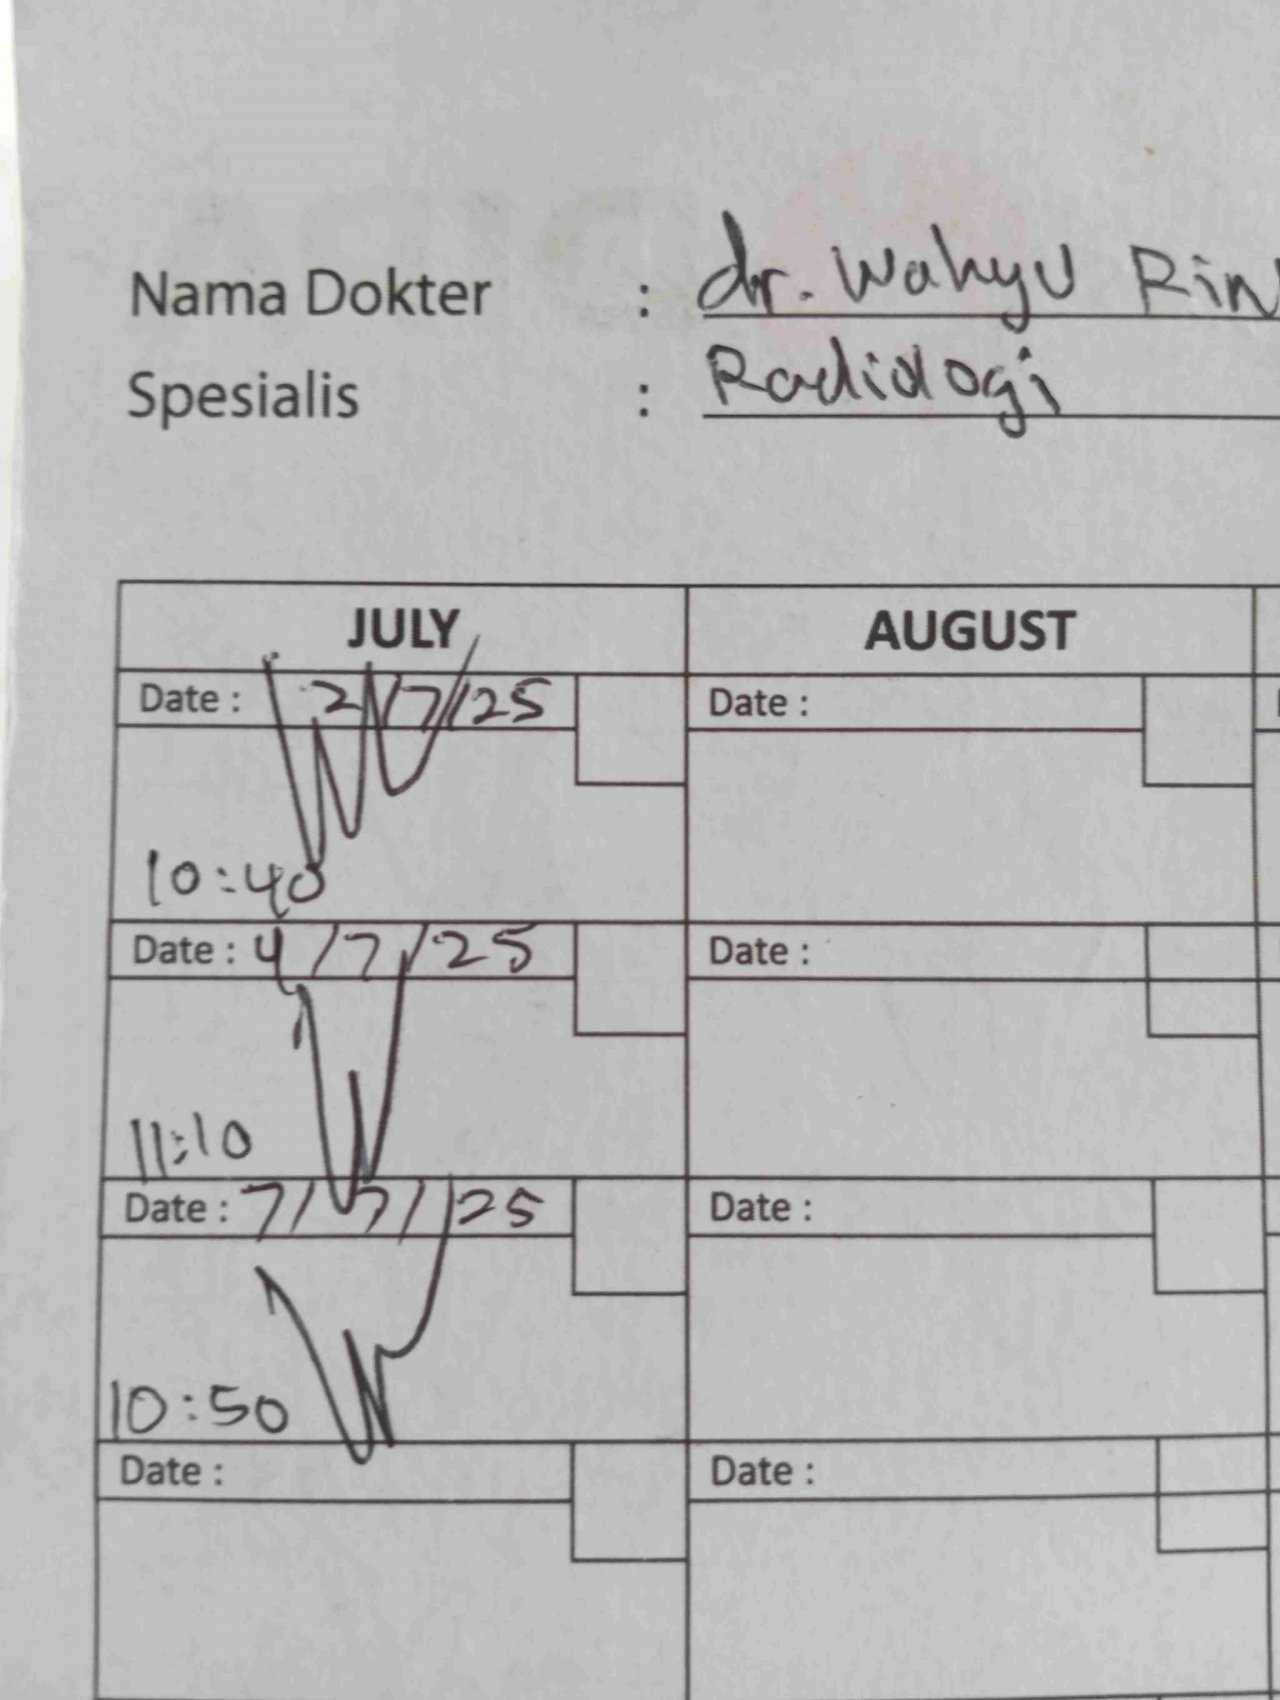 Nama Dokter : dr. Wahyu Rin
Spesialis : Radiologi
JULY AUGUST
Date : 2/7/25 Date :
10:40
Date : 4/7/25 Date :
11:10
Date : 7/7/25 Date :
10:50
Date : Date :